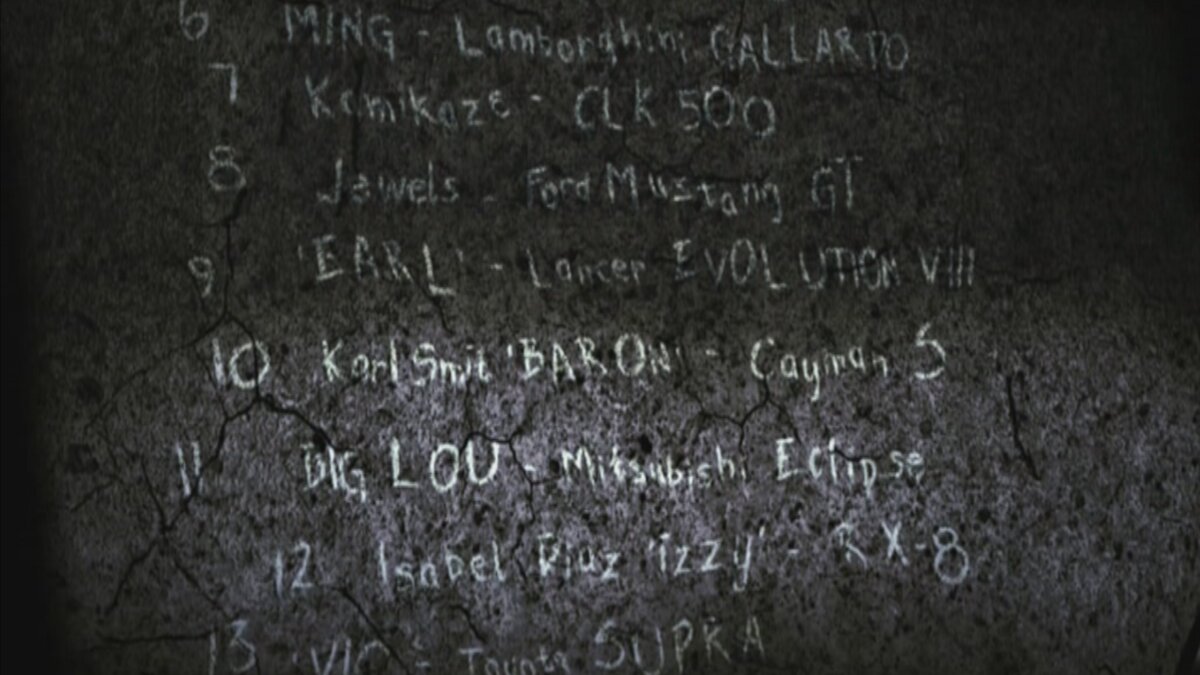 6 MING - Lamborghini GALLARDO
7 Kamikaze - CLK 500
8 Jewels - Ford Mustang GT
9 'EARL' - Lancer EVOLUTION VIII
10 Karl Smit 'BARON' - Cayman S
11 BIG LOU - Mitsubishi Eclipse
12 Isabel Diaz 'izzy' - RX-8
13 'VIC' - Toyota SUPRA